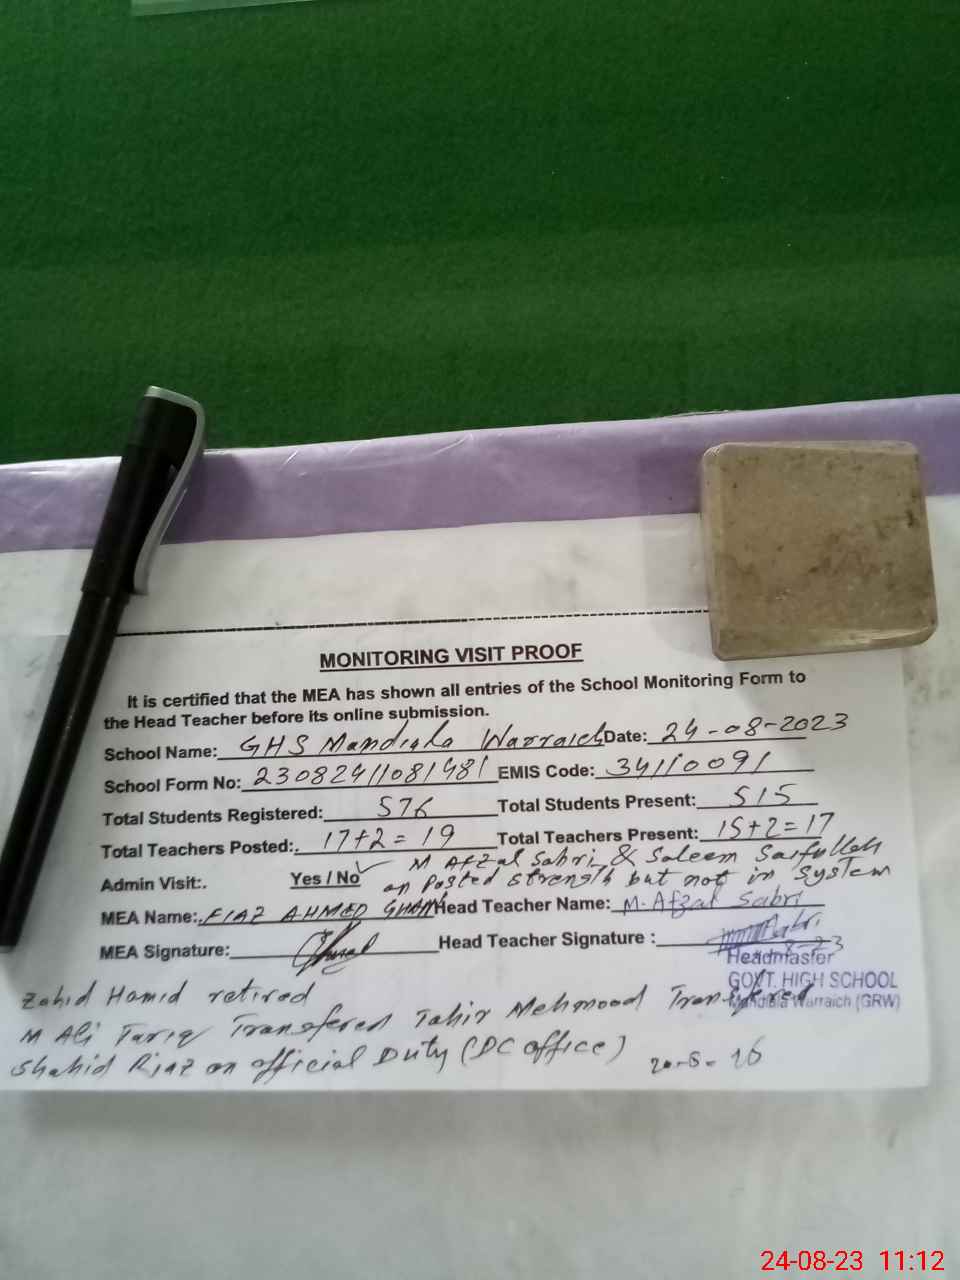 MONITORING VISIT PROOF
It is certified that the MEA has shown all entries of the School Monitoring Form to
the Head Teacher before its online submission.
School Name: GHS Mandiala Warraich Date: 24-08-2023
School Form No: 23082411081481 EMIS Code: 34110091
Total Students Registered: 576 Total Students Present: 515
Total Teachers Posted:. 17+2=19 Total Teachers Present: 15+2=17
M Afzal Sabri & Saleem Saifullah
Admin Visit:. Yes / No ✓ on Posted strength but not in system
MEA Name:. FIAZ AHMED GHANI Head Teacher Name: M. Afzal Sabri
MEA Signature: Head Teacher Signature :
Headmaster
GOVT. HIGH SCHOOL
Mandiala Warraich (GRW)
Zahid Hamid retired
M Ali Tariq Transfered Tahir Mehmood Transfered
Shahid Riaz on official Duty (DC office)
24-08-23 11:12